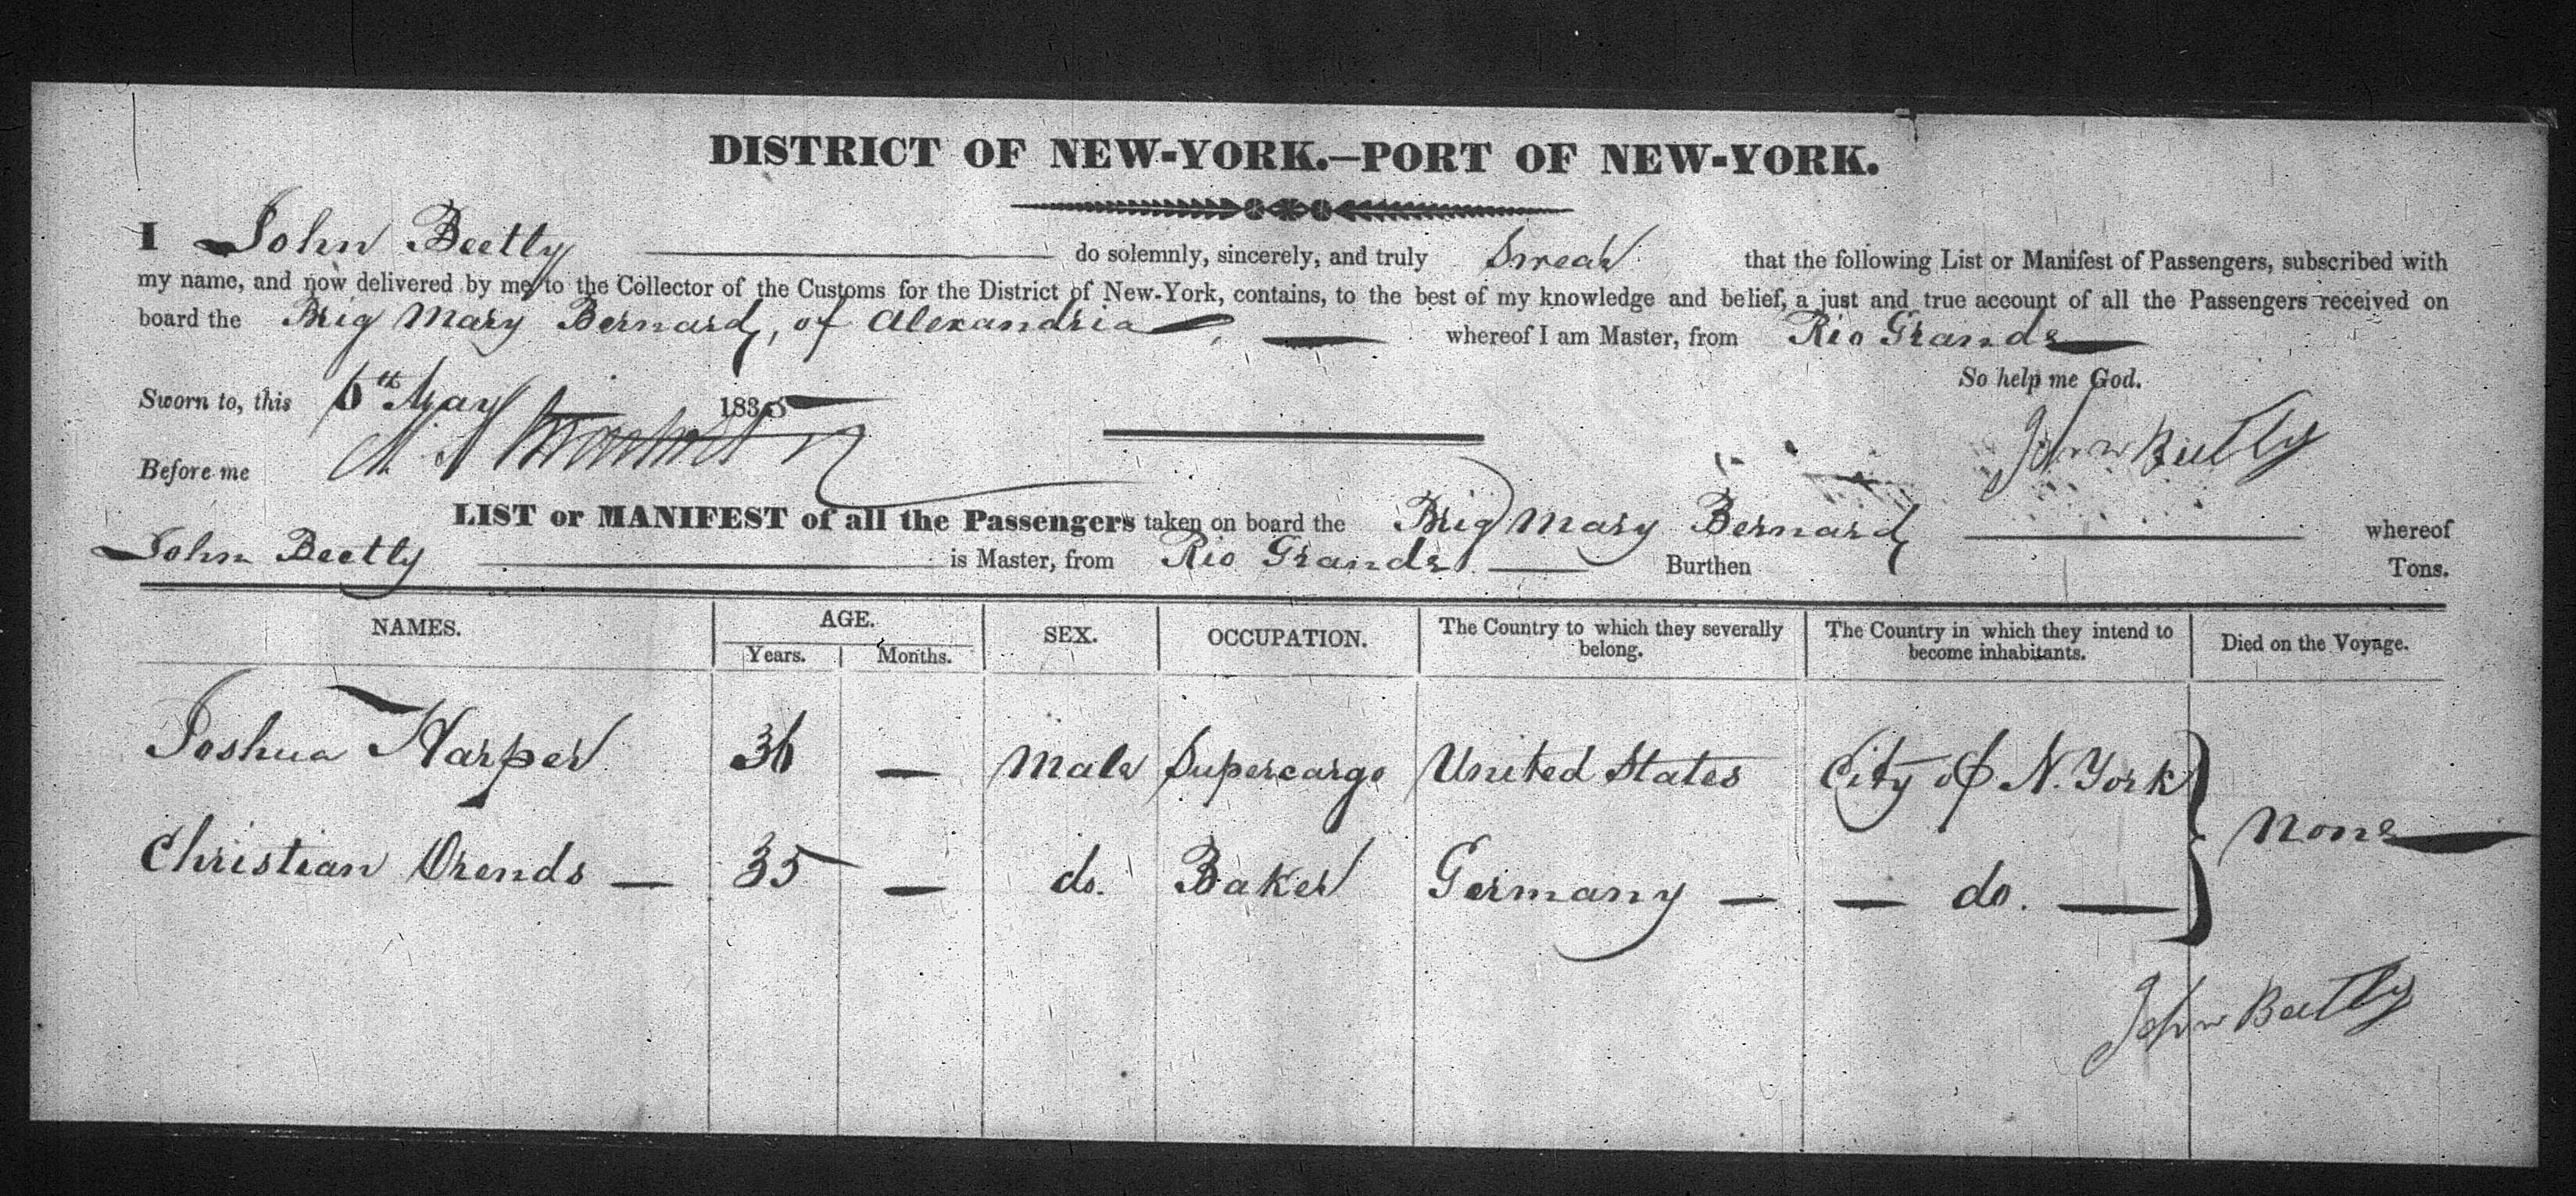 DISTRICT OF NEW-YORK.—PORT OF NEW-YORK.
I John Beetty do solemnly, sincerely, and truly Swear that the following List or Manifest of Passengers, subscribed with
my name, and now delivered by me to the Collector of the Customs for the District of New-York, contains, to the best of my knowledge and belief, a just and true account of all the Passengers received on
board the Brig Mary Bernard, of Alexandria whereof I am Master, from Rio Grande
So help me God.
Sworn to, this 6th May 1835
John Beetty
Before me
LIST or MANIFEST of all the Passengers taken on board the Brig Mary Bernard whereof
John Beetty is Master, from Rio Grande Burthen Tons.
NAMES. AGE. SEX. OCCUPATION. The Country to which they severally belong. The Country in which they intend to become inhabitants. Died on the Voyage.
Years. Months.
Joshua Harper 36 — Male Supercargo United States City of N. York
None
Christian Orends — 35 — do. Baker Germany — — do. —
John Beetty